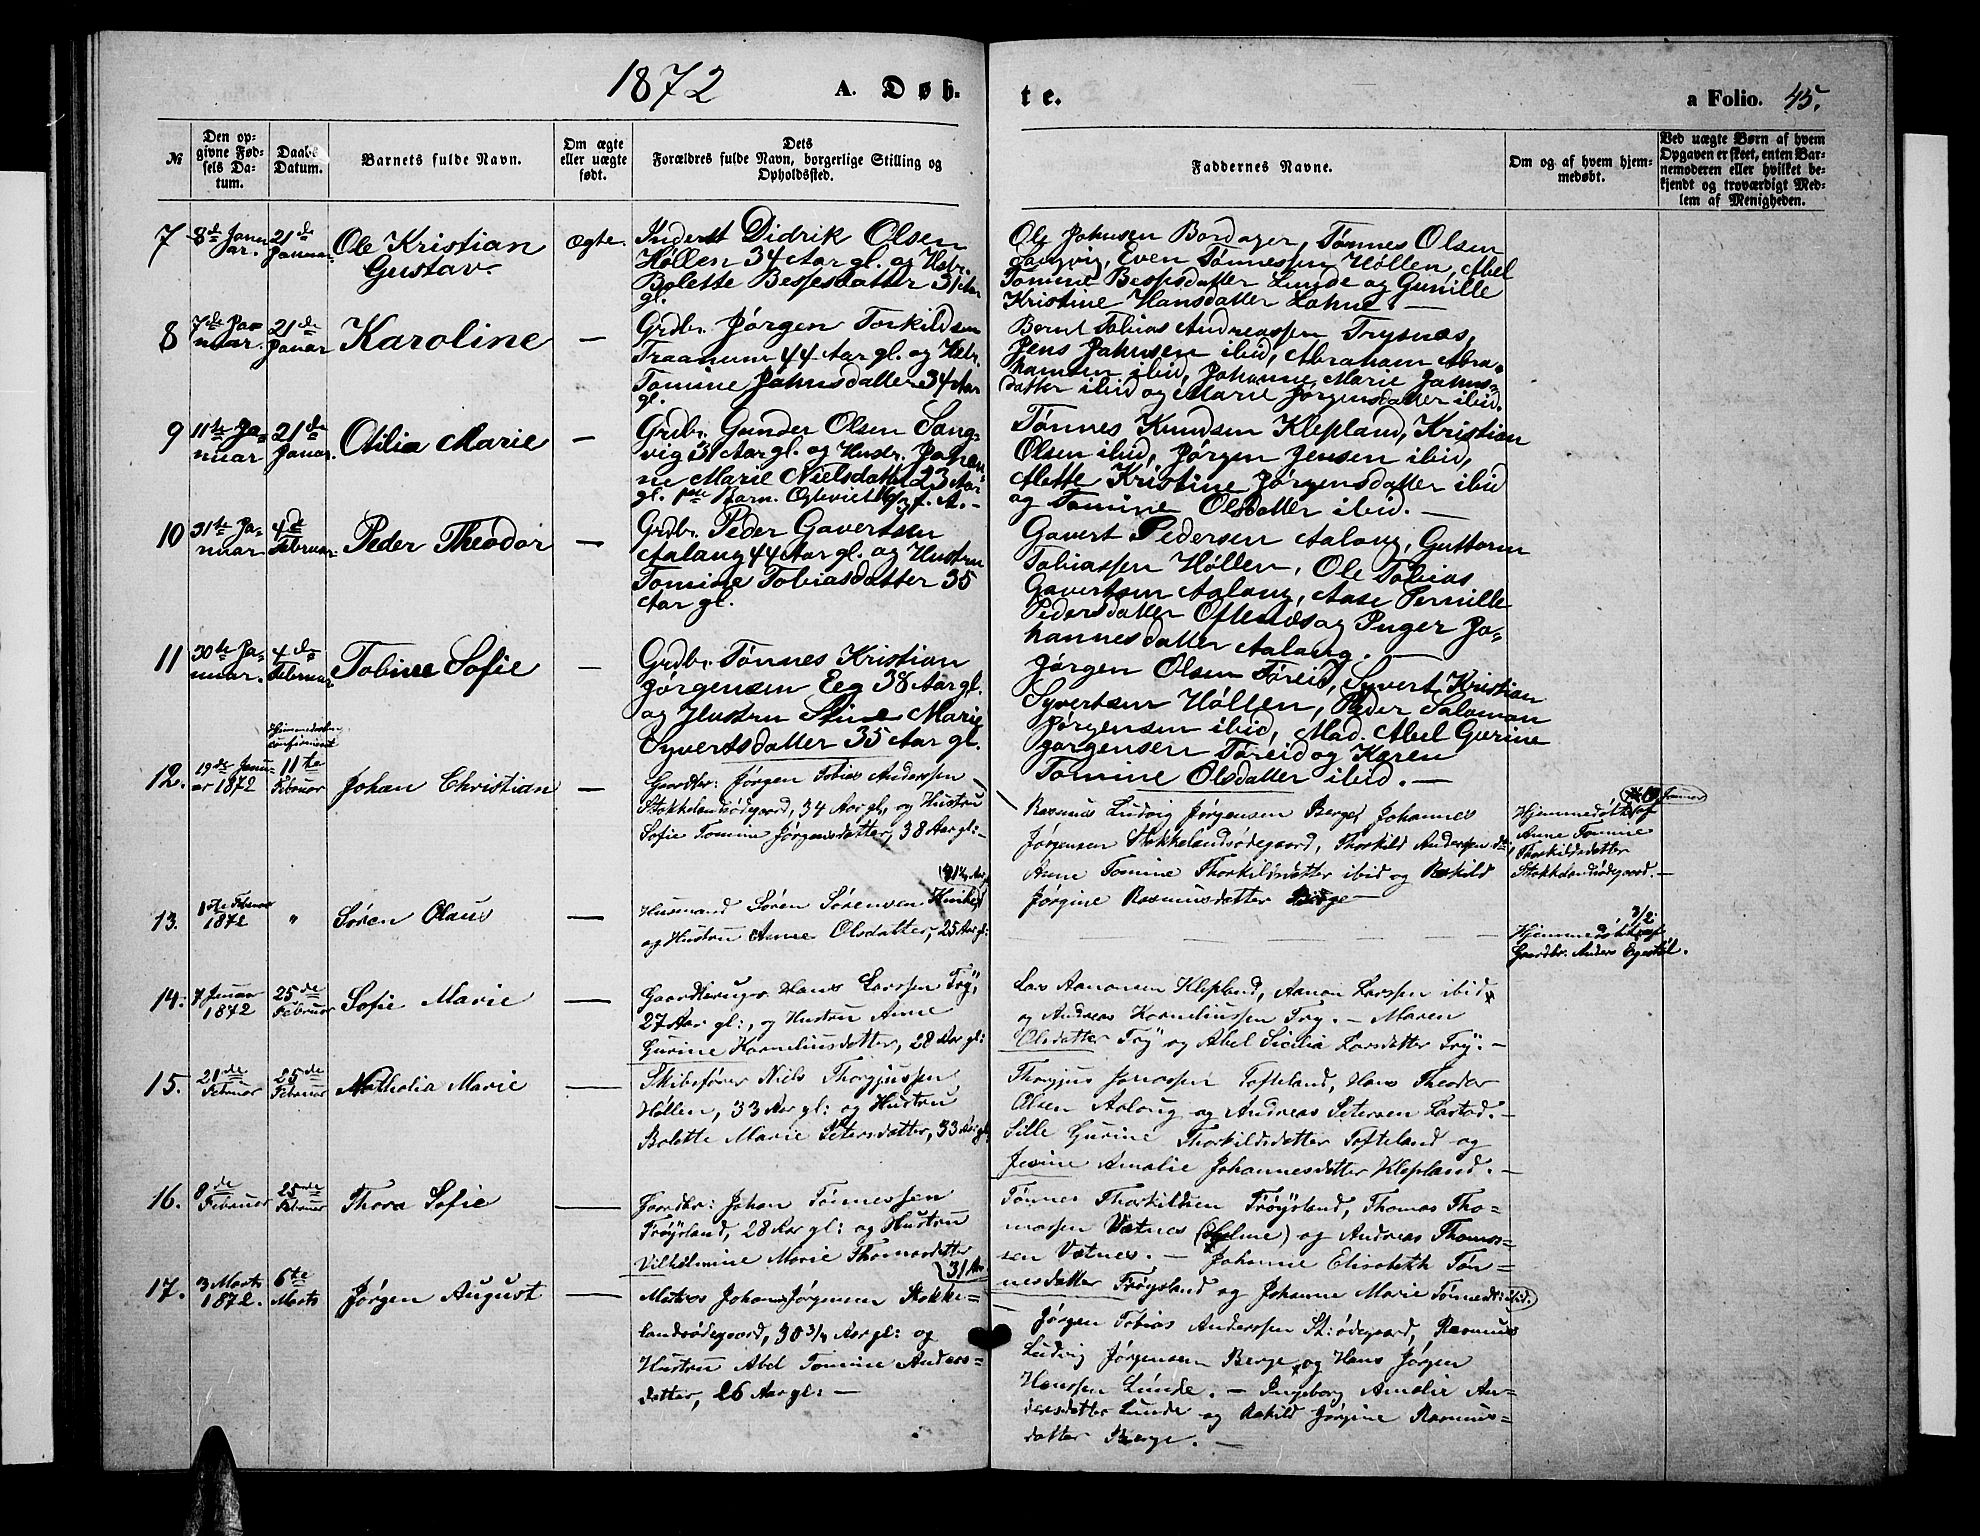 1872
A. Døb-
te.
a Folio. 45.
№
Den op-
givne Fød-
sels Da-
tum.
Daabs
Datum.
Barnets fulde Navn.
Om ægte
eller uægte
født.
Dets
Forældres fulde Navn, borgerlige Stilling og
Opholdssted.
Faddernes Navne.
Om og af hvem hjem-
medøbt.
Ved uægte Børn af hvem
Opgaven er skeet, enten Bar-
nemoderen eller hvilket be-
kjendt og troværdigt Med-
lem af Menigheden.
7
8de Janu
ar.
21de
Januar.
Ole Kristian
Gustav.
Ægte.
Inderst Didrik Olsen
Høllen 34 Aar gl. og Hstr.
Bolette Bespesdatter 31 Aar
gl.
Ole Jahnsen Bordager, Tønnes Olsen
Langvig, Even Tønnessen Høllen, Abel
Tomine Bespesdatter Lunde og Gunille
Kristine Hansdatter Lohne. —
8
7de Ja-
nuar.
21de
Januar
Karoline
—
Grdbr. Jørgen Torkildsen
Traanum 44 Aar gl. og Hstr.
Tomine Jahnsdatter 34 Aar
gl.
Bernt Tobias Andreassen Trysnæs,
Jens Jahnsen ibid, Abraham Abra-
hamsen ibid, Johanne Marie Jahns-
datter ibid og Marie Jørgensdatter ibid.
9
11te Ja-
nuar
21de
Januar.
Otilia Marie
—
Grdbr. Gunder Olsen Lang-
vig 31 Aar gl. og Hustr. Johan-
ne Marie Nielsdatter 23 Aar
gl. 1ste Barn.
Tønnes Knudsen Klepland, Kristian
Olsen ibid, Jørgen Jensen ibid,
Mette Kristine Jørgensdatter ibid
og Tomine Olsdatter ibid. —
10
31te Ja-
nuar
4de
Februar.
Peder Theodor
—
Grdbr. Peder Gavertsen
Aalaug 44 Aar gl. og Hustru
Tomine Tobiasdatter 35
Aar gl.
Gavert Pedersen Aalaug, Guttorm
Tobiassen Høllen, Ole Tobias
Gavertsen Aalaug, Aase Pernille
Pedersdatter Oftenæs og Inger Jo-
hannesdatter Aalaug. —
11
30te Ja-
nuar.
4de
Februar.
Tobine Sofie
—
Grdbr. Tønnes Kristian
Jørgensen Eeg 38 Aar gl.
og Hustru Stine Marie
Syvertsdatter 35 Aar gl.
Jørgen Olsen Føreid, Syvert Kristian
Syvertsen Høllen, Peder Saloman
Jørgensen ibid, Mad. Abel Gurine
Jørgensen Føreid og Karen
Tomine Olsdatter ibid. —
12.
19de Janu-
ar 1872
Hjemmedaaben
confirmeret
11te
Februar
Johan Christian
—
Gaardbr: Jørgen Tobias Anderssen
Stokkelandsødegaard, 34 Aar gl, og Hustru
Sofie Tomine Jørgensdatter, 38 Aar gl: —
Rasmus Ludvig Jørgensen Berge, Johannes
Jørgensen Stokkelandsødegaard, Thorkild Anderssen do
Anne Tomine Thorkildsdatter ibid og Rakild
Jørgine Rasmusdatter Berge —
Januar
Hjemmedøbt af
Anne Tomine
Thorkildsdatter
Stokkelandsødegaard. —
13.
1ste Februar
1872
"
Søren Olaus
—
Husmand Søren Sørensen
og Hustru Anne Olsdatter, 25 Aar gl:
3/2
Hjemmedøbt af
Gaardbr. Anders Egestøl.
14.
7 Januar
1872
25de
Februar
Sofie Marie
—
Gaardbruger Hans Larssen Try,
27 Aar gl:, og Hustru Anne
Gurine Korneliusdatter, 28 Aar gl:
Lars Aanonsen Klepland, Aanon Larssen ibid
og Andreas Korneliussen Try. — Maren
Olsdatter Try og Abel Sicilia Larsdatter Try. —
15.
21de
Februar
25de
Februar
Nathalia Marie
—
Skibsfører Niels Thorgjussen
Høllen, 33 Aar gl: og Hustru
Bolette Marie Petersdatter, 33 Aar gl
Thorgjus Jonassen Tofteland, Hans Theodor
Olsen Aalaug og Andreas Petersen Lastad. —
Sille Gurine Thorkildsdatter Tofteland og
Jesine Amalie Johannesdatter Klepland. —
16.
8de
Februar
25de
Februar
Thora Sofie
—
Gaardbr: Johan Tønnessen
Trøysland, 28 Aar gl: og Hustru
Vilhelmine Marie Thomasdatter
31 Aar
Tønnes Thorkildsen Trøysland, Thomas Tho-
massen Vatnes (Holme) og Andreas Thomas-
sen Vatnes. — Johanne Elisabeth Tøn-
nesdatter Trøysland og Johanne Marie Tønnesdt: ibid.
17.
3 Marts
1872.
6te
Marts
Jørgen August
—
Matros Johan Jørgensen Stokke-
landsødegaard, 30 3/4 Aar gl: og
Hustru Abel Tomine Anders-
datter, 26 Aar gl: —
Jørgen Tobias Anderssen St:ødegaard, Rasmus
Ludvig Jørgensen Berge og Hans Jørgen
Hanssen Lunde. — Ingeborg Amalie An-
dersdatter Lunde og Rakild Jørgine Rasmus-
datter Berge. —